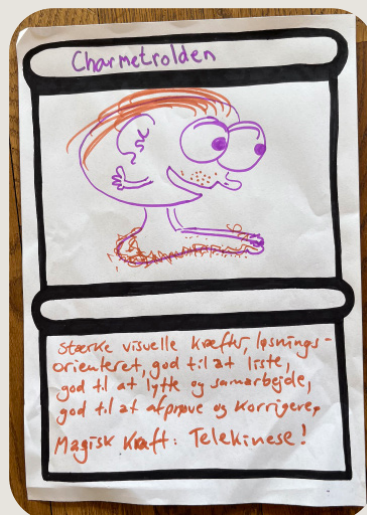 Charmetrolden
Stærke visuelle kræfter, løsnings-
orienteret, god til at liste,
god til at lytte og samarbejde,
god til at afprøve og korrigere,
Magisk kraft: Telekinese!